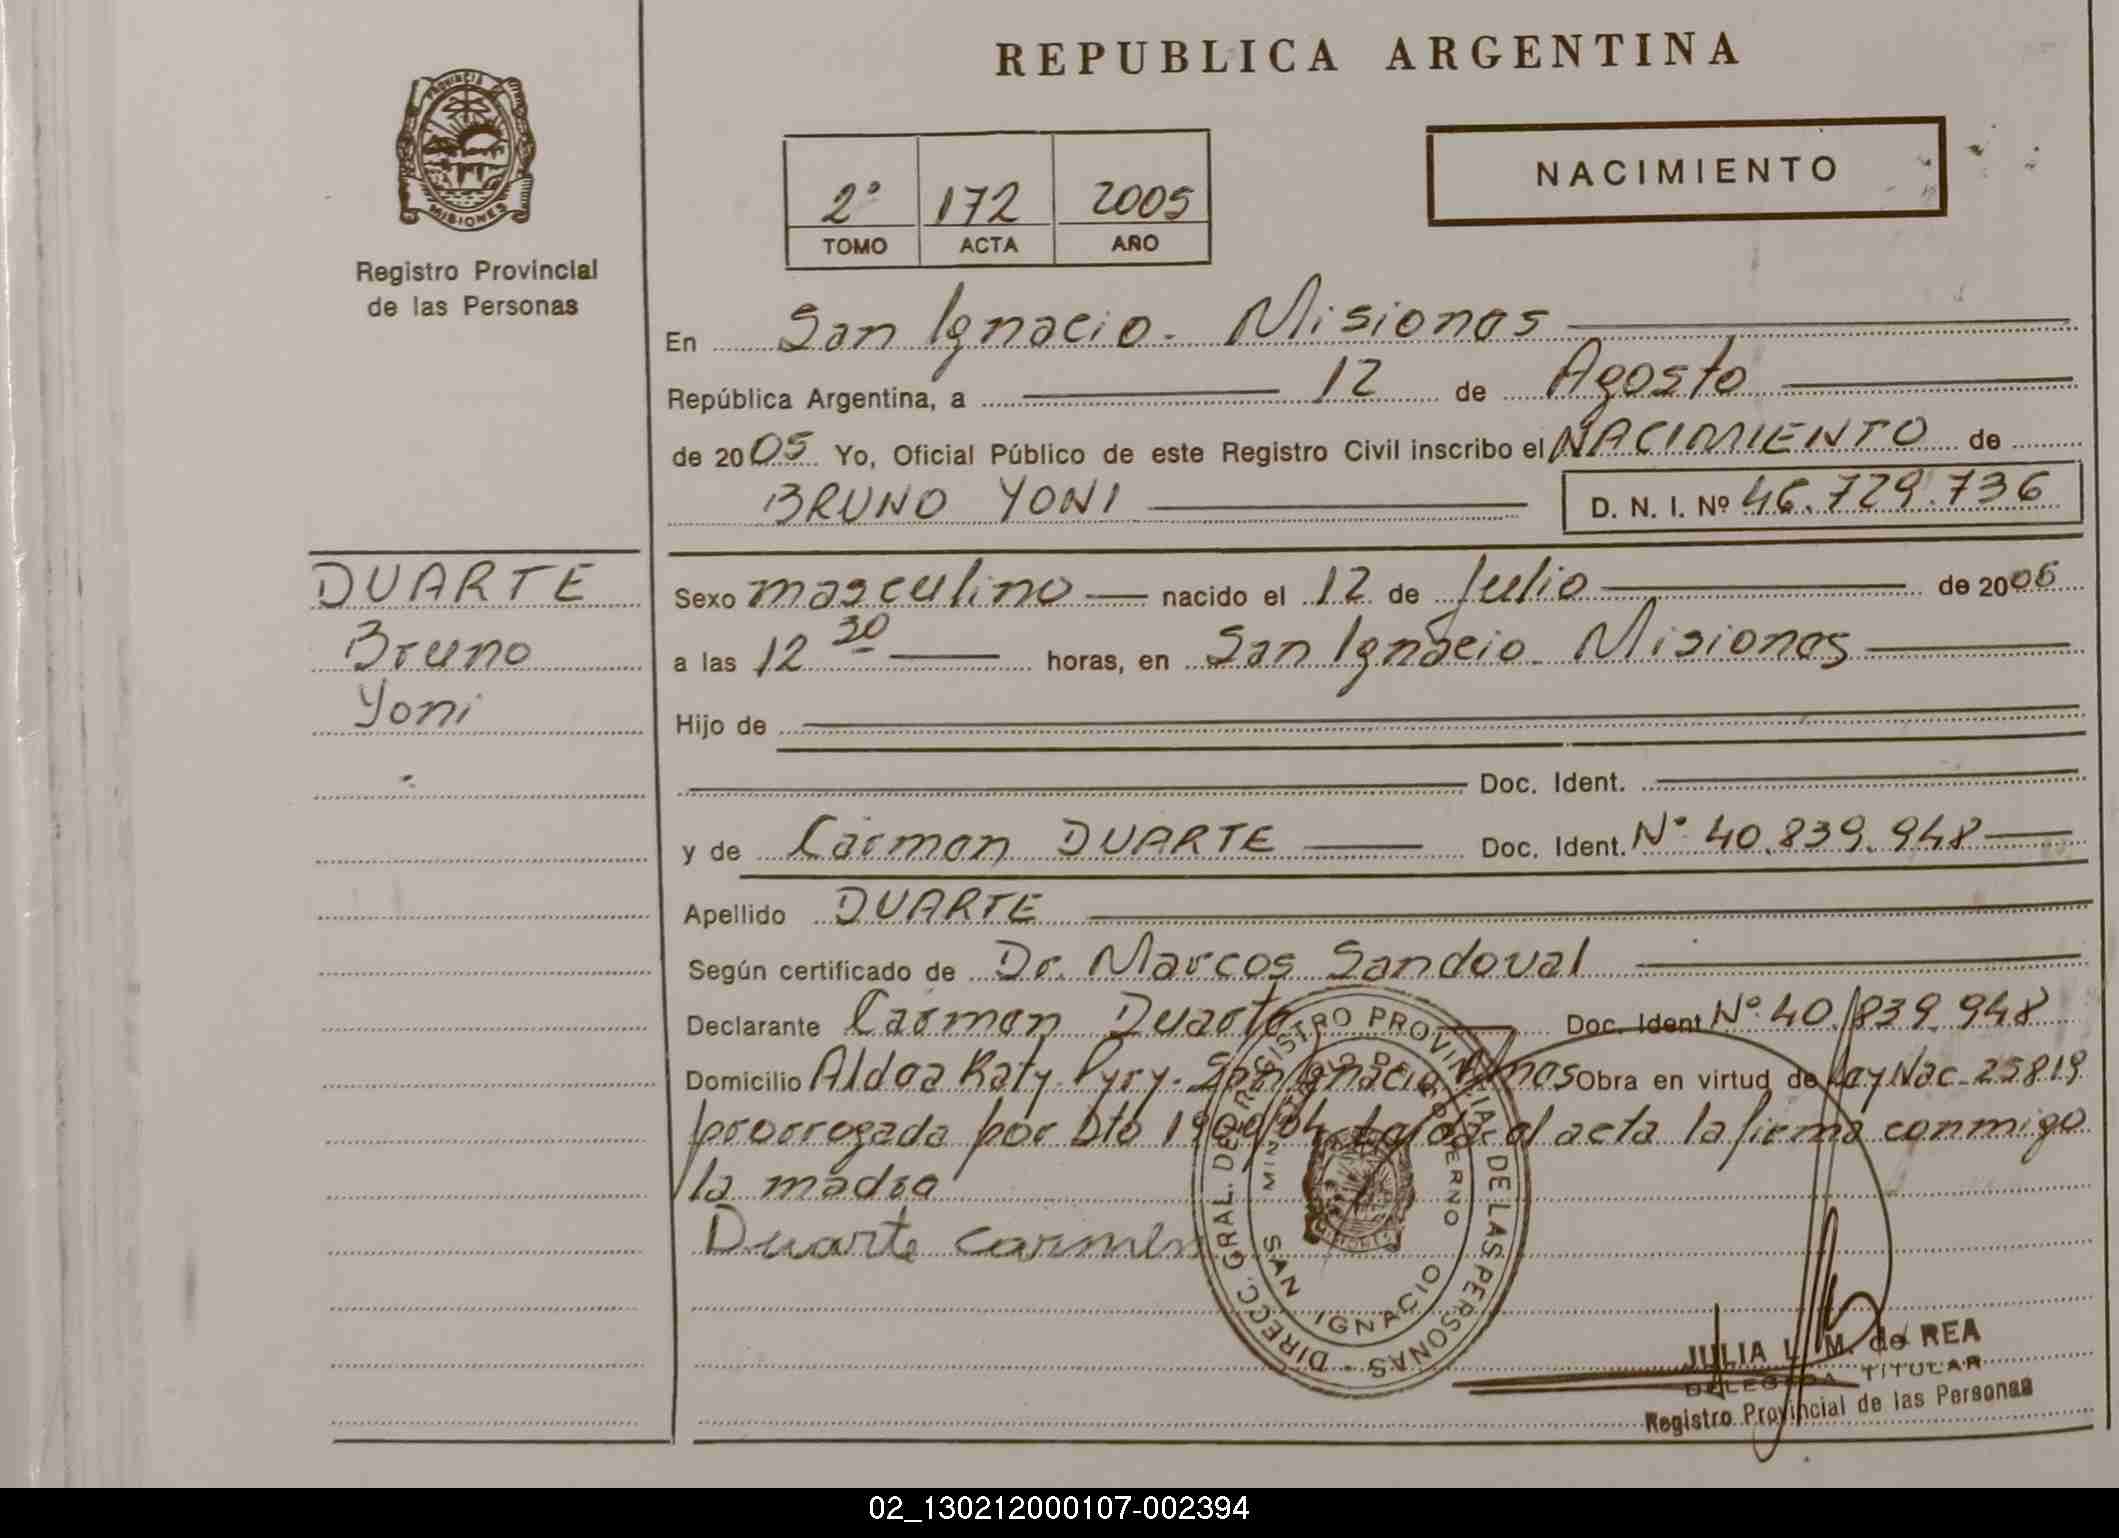 REPUBLICA ARGENTINA
PROVINCIA MISIONES
Registro Provincial
de las Personas
2º 172 2005
TOMO ACTA AÑO
NACIMIENTO
En San Ignacio - Misiones
República Argentina, a 12 de Agosto
de 2005 Yo, Oficial Público de este Registro Civil inscribo el NACIMIENTO de
BRUNO YONI D. N. I. Nº 46.729.736
DUARTE
Bruno
Yoni
Sexo masculino nacido el 12 de Julio de 2005
a las 12 30 horas, en San Ignacio - Misiones
Hijo de
Doc. Ident.
y de Carmen DUARTE Doc. Ident. Nº 40.839.948
Apellido DUARTE
Según certificado de Dr. Marcos Sandoval
Declarante Carmen Duarte Doc. Ident Nº 40.839.948
Domicilio Aldea Katy Pyry - San Ignacio Mnes Obra en virtud de Ley Nac 25819
prorrogada por Dto 1900/04 el acta la firma conmigo
la madre
Duarte Carmen
DIRECC. GRAL. DEL REGISTRO PROVINCIAL DE LAS PERSONAS
MINISTERIO DE GOBIERNO
SAN IGNACIO
JULIA L. M. de REA
DELEGADA TITULAR
Registro Provincial de las Personas
02_130212000107-002394